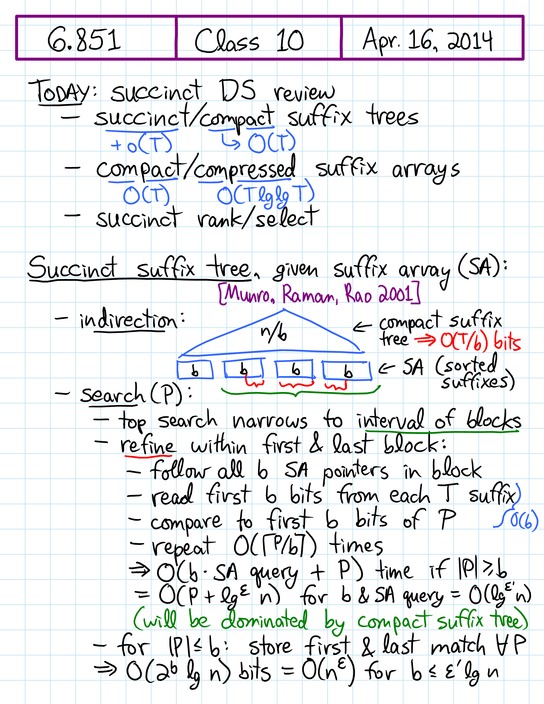 6.851 Class 10 Apr. 16, 2014
TODAY: succinct DS review
- succinct/compact suffix trees
+o(T) ↳ O(T)
- compact/compressed suffix arrays
O(T) O(T lglg T)
- succinct rank/select
Succinct suffix tree, given suffix array (SA):
[Munro, Raman, Rao 2001]
- indirection: n/b ← compact suffix
tree ⇒ O(T/b) bits
b b b b ← SA (sorted
suffixes)
- search(P):
- top search narrows to interval of blocks
- refine within first & last block:
- follow all b SA pointers in block
- read first b bits from each T suffix
- compare to first b bits of P O(b)
- repeat O(⌈P/b⌉) times
⇒ O(b · SA query + P) time if |P| ≥ b
= O(P + lg^ε n) for b & SA query = O(lg^ε' n)
(will be dominated by compact suffix tree)
- for |P| ≤ b: store first & last match ∀P
⇒ O(2^b lg n) bits = O(n^ε) for b ≤ ε' lg n